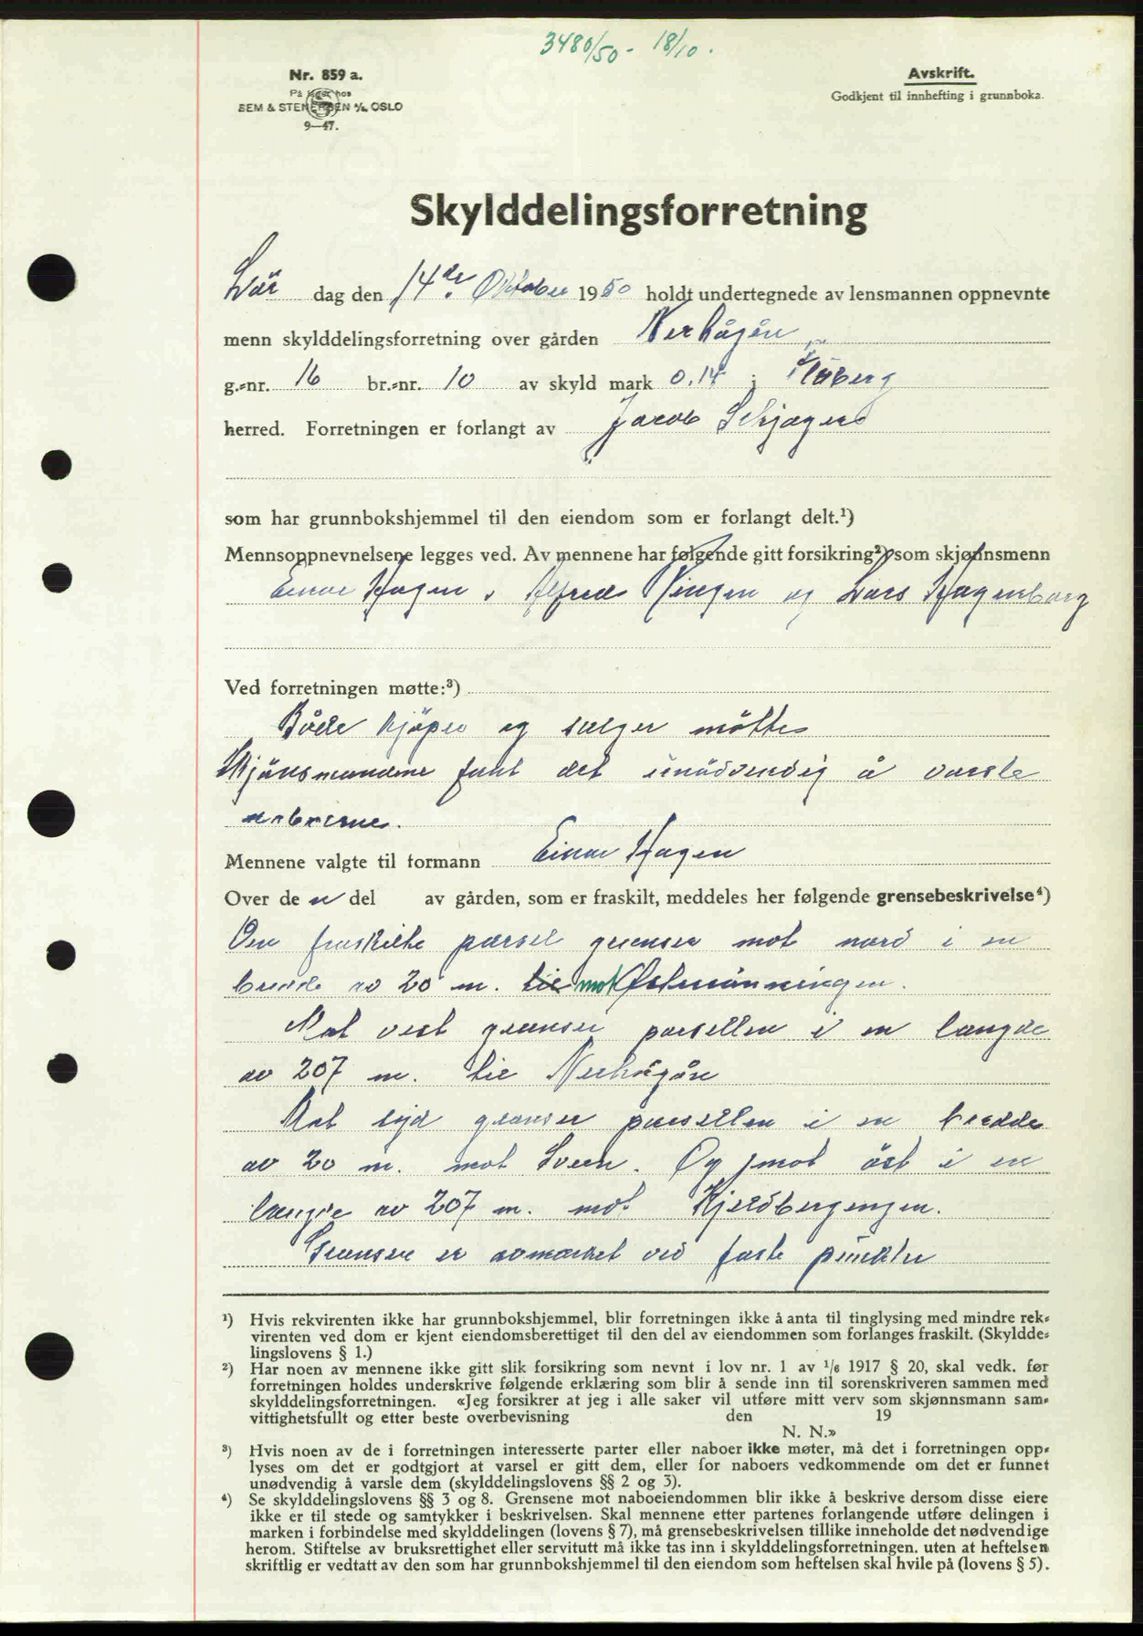 3480/50 - 18/10.
Nr. 859 a.
På lager hos
SEM & STENERSEN A/S, OSLO
9—47.
Avskrift.
Godkjent til innhefting i grunnboka.
Skylddelingsforretning
Lör dag den 14de Oktober 1950 holdt undertegnede av lensmannen oppnevnte
menn skylddelingsforretning over gården Nerhågån
g.-nr. 16 br.-nr. 10 av skyld mark 0.14 i Flåberg
herred. Forretningen er forlangt av Jacob Schjager
som har grunnbokshjemmel til den eiendom som er forlangt delt.¹)
Mennsoppnevnelsene legges ved. Av mennene har følgende gitt forsikring²) som skjønnsmenn
Einar Hagen, Alfred Ringen og Lars Hagenborg
Ved forretningen møtte:³)
Både kjöper og selger mötte
Skjönsmennene fant det unödvendig å varsle
naboerne.
Mennene valgte til formann Einar Hagen
Over den del av gården, som er fraskilt, meddeles her følgende grensebeskrivelse⁴)
Den fraskilte parsel grenser mot nord i en
bredde av 20 m. til mot Östmönningen.
Mot vest grenser parsellen i en længde
av 207 m. til Nerhågån
Mot syd grenser parsellen i en bredde
av 20 m. mot Sveen. Og mot öst i en
længde av 207 m. mot Kjeldbergengen.
Grensene er avmerket ved faste punkter
¹) Hvis rekvirenten ikke har grunnbokshjemmel, blir forretningen ikke å anta til tinglysing med mindre rek-
virenten ved dom er kjent eiendomsberettiget til den del av eiendommen som forlanges fraskilt. (Skyldde-
lingslovens § 1.)
²) Har noen av mennene ikke gitt slik forsikring som nevnt i lov nr. 1 av 1/6 1917 § 20, skal vedk. før
forretningen holdes underskrive følgende erklæring som blir å sende inn til sorenskriveren sammen med
skylddelingsforretningen. «Jeg forsikrer at jeg i alle saker vil utføre mitt verv som skjønnsmann sam-
vittighetsfullt og etter beste overbevisning den 19
N. N.»
³) Hvis noen av de i forretningen interesserte parter eller naboer ikke møter, må det i forretningen opp-
lyses om det er godtgjort at varsel er gitt dem, eller for naboers vedkommende om det er funnet
unødvendig å varsle dem (skylddelingslovens §§ 2 og 3).
⁴) Se skylddelingslovens §§ 3 og 8. Grensene mot naboeiendommen blir ikke å beskrive dersom disse eiere
ikke er til stede og samtykker i beskrivelsen. Skal mennene etter partenes forlangende utføre delingen i
marken i forbindelse med skylddelingen (lovens § 7), må grensebeskrivelsen tillike inneholde det nødvendige
herom. Stiftelse av bruksrettighet eller servitutt må ikke tas inn i skylddelingsforretningen, uten at heftelsen
skriftlig er vedtatt av den som har grunnbokshjemmel til den eiendom som heftelsen skal hvile på (lovens § 5).